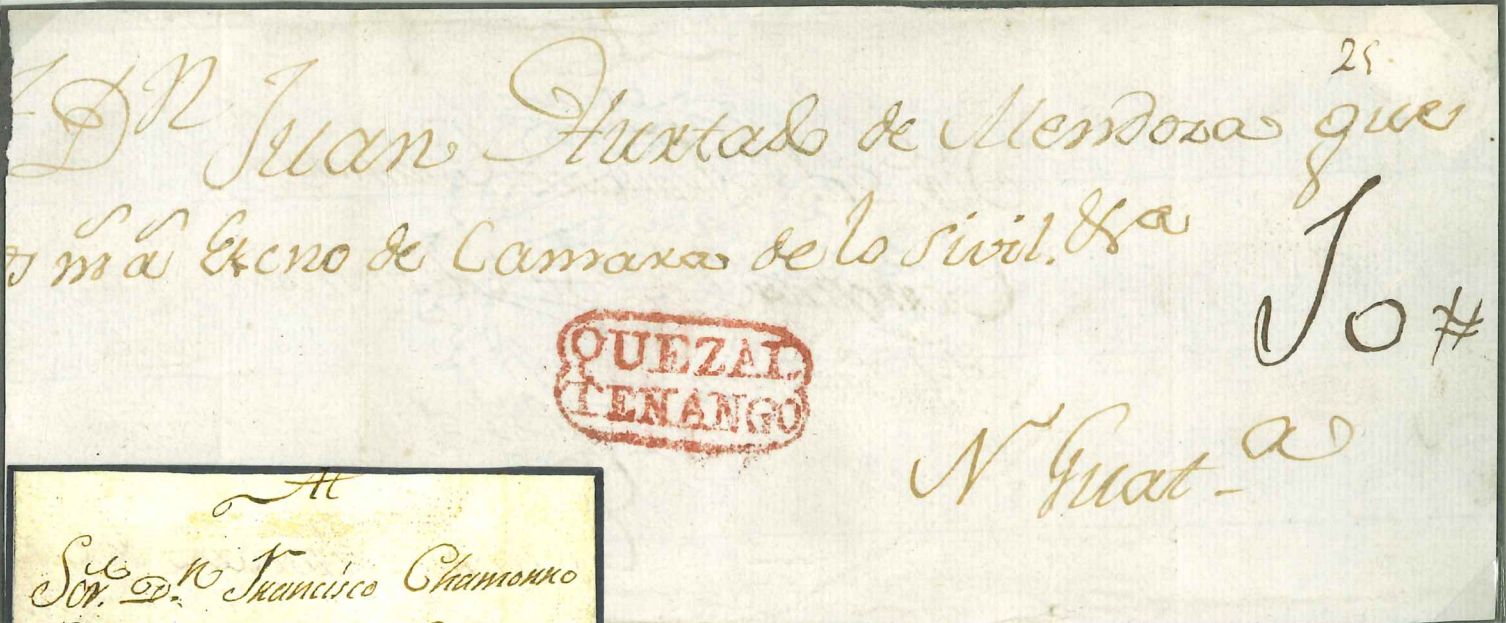 25
Dn Juan Hurtado de Mendoza que
ms as Escno de Camara de lo Sivil. &a
10 #
QUEZAL
TENANGO
Na Guata
Al
Sor. Dn Francisco Chamorro